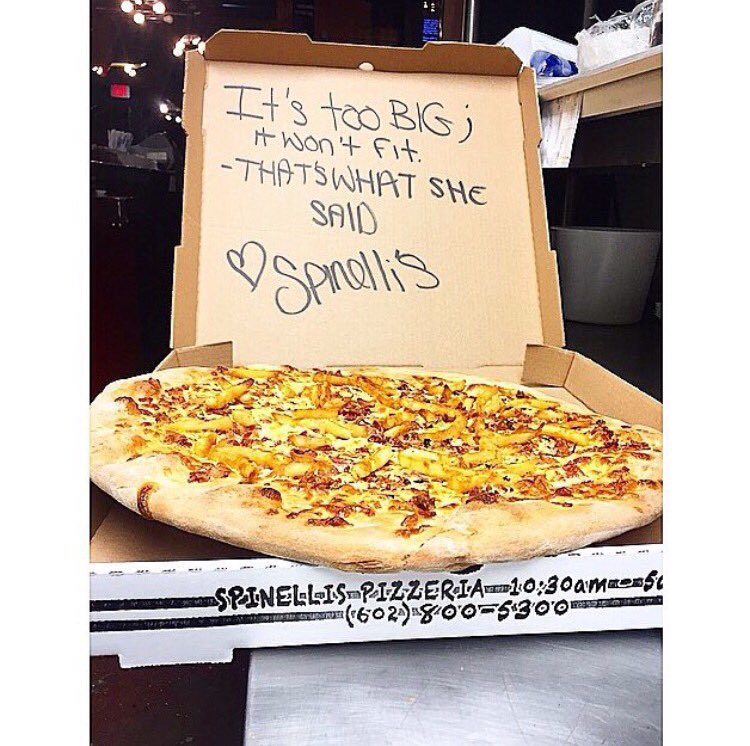 It's too BIG;
it won't fit.
-THAT'S WHAT SHE
SAID
♡ Spinelli's
SPINELLIS PIZZERIA-10:30am-5
(602)-800-5300